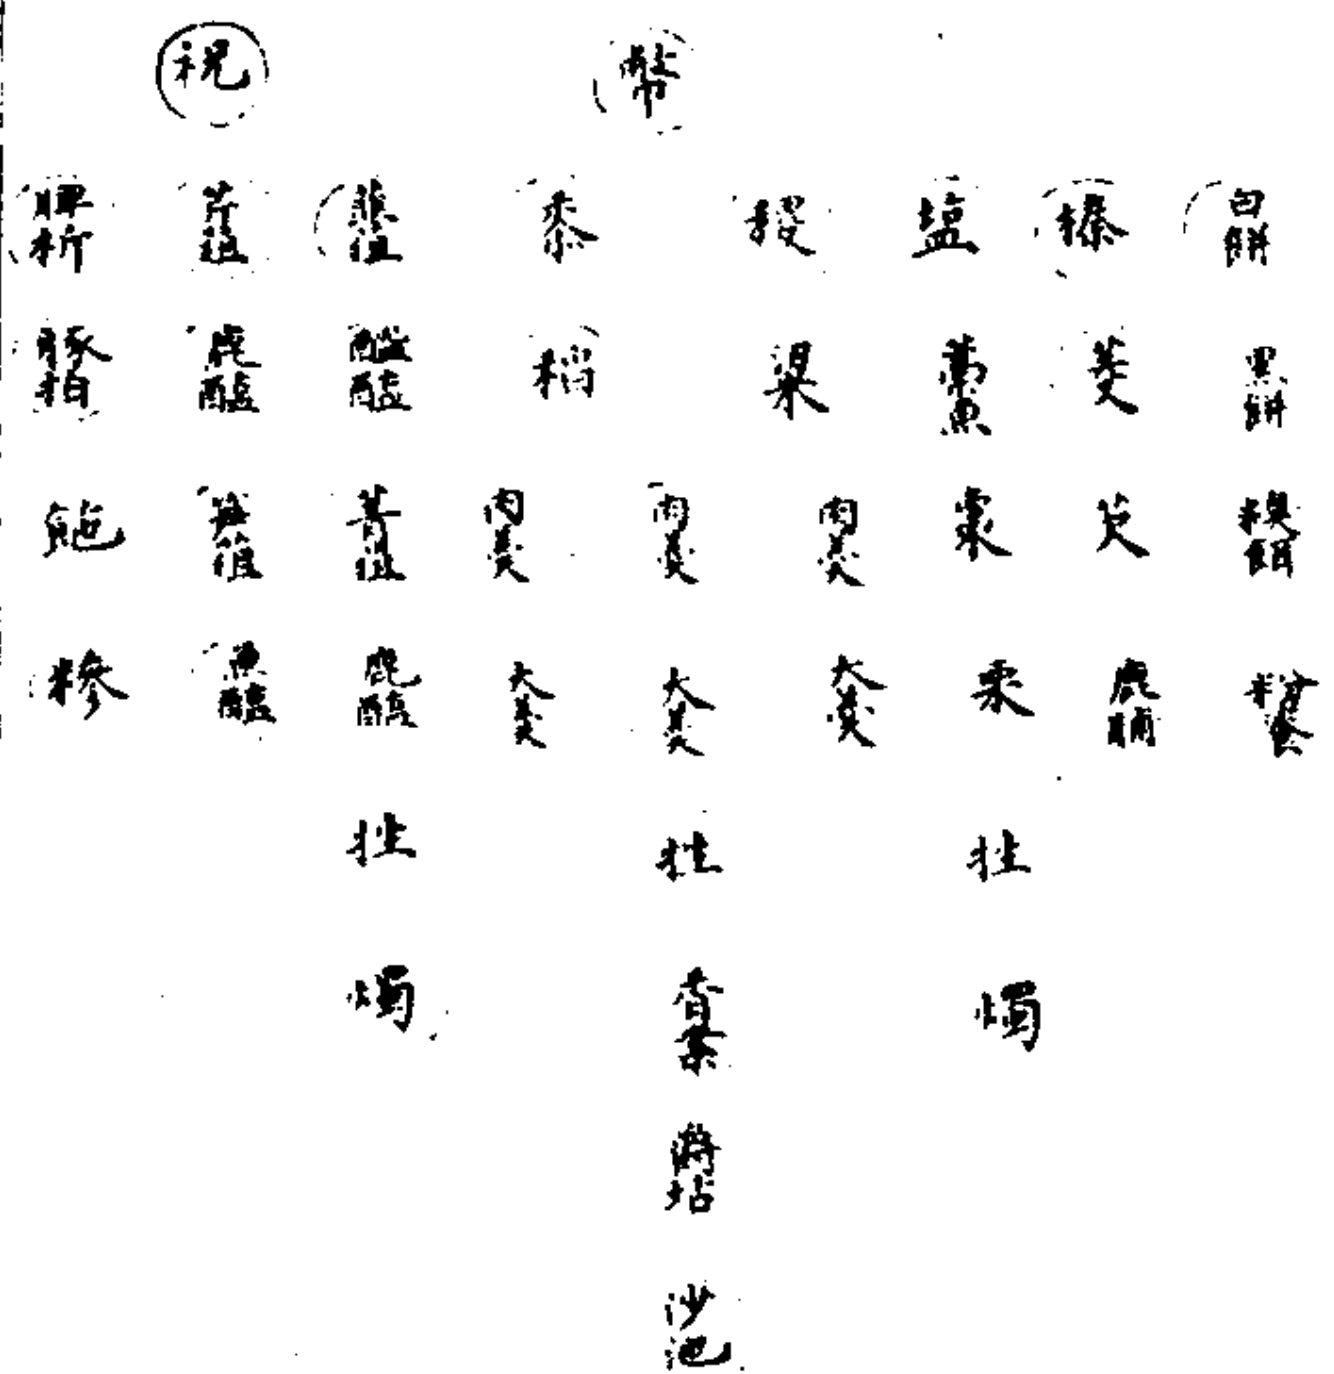 祝 幣
脾析 芹菹 韭菹 黍 稷 塩 榛 白餠
豚拍 鹿醢 醓醢 稻 粱 藁魚 菱 黒餠
酏 笋菹 菁菹 肉羹 肉羹 肉羹 棗 芡 糗餌
糝 魚醢 鹿醢 大羹 大羹 大羹 栗 鹿脯 粉餈
牲 牲 牲
燭 香案 燭
坫
沙池